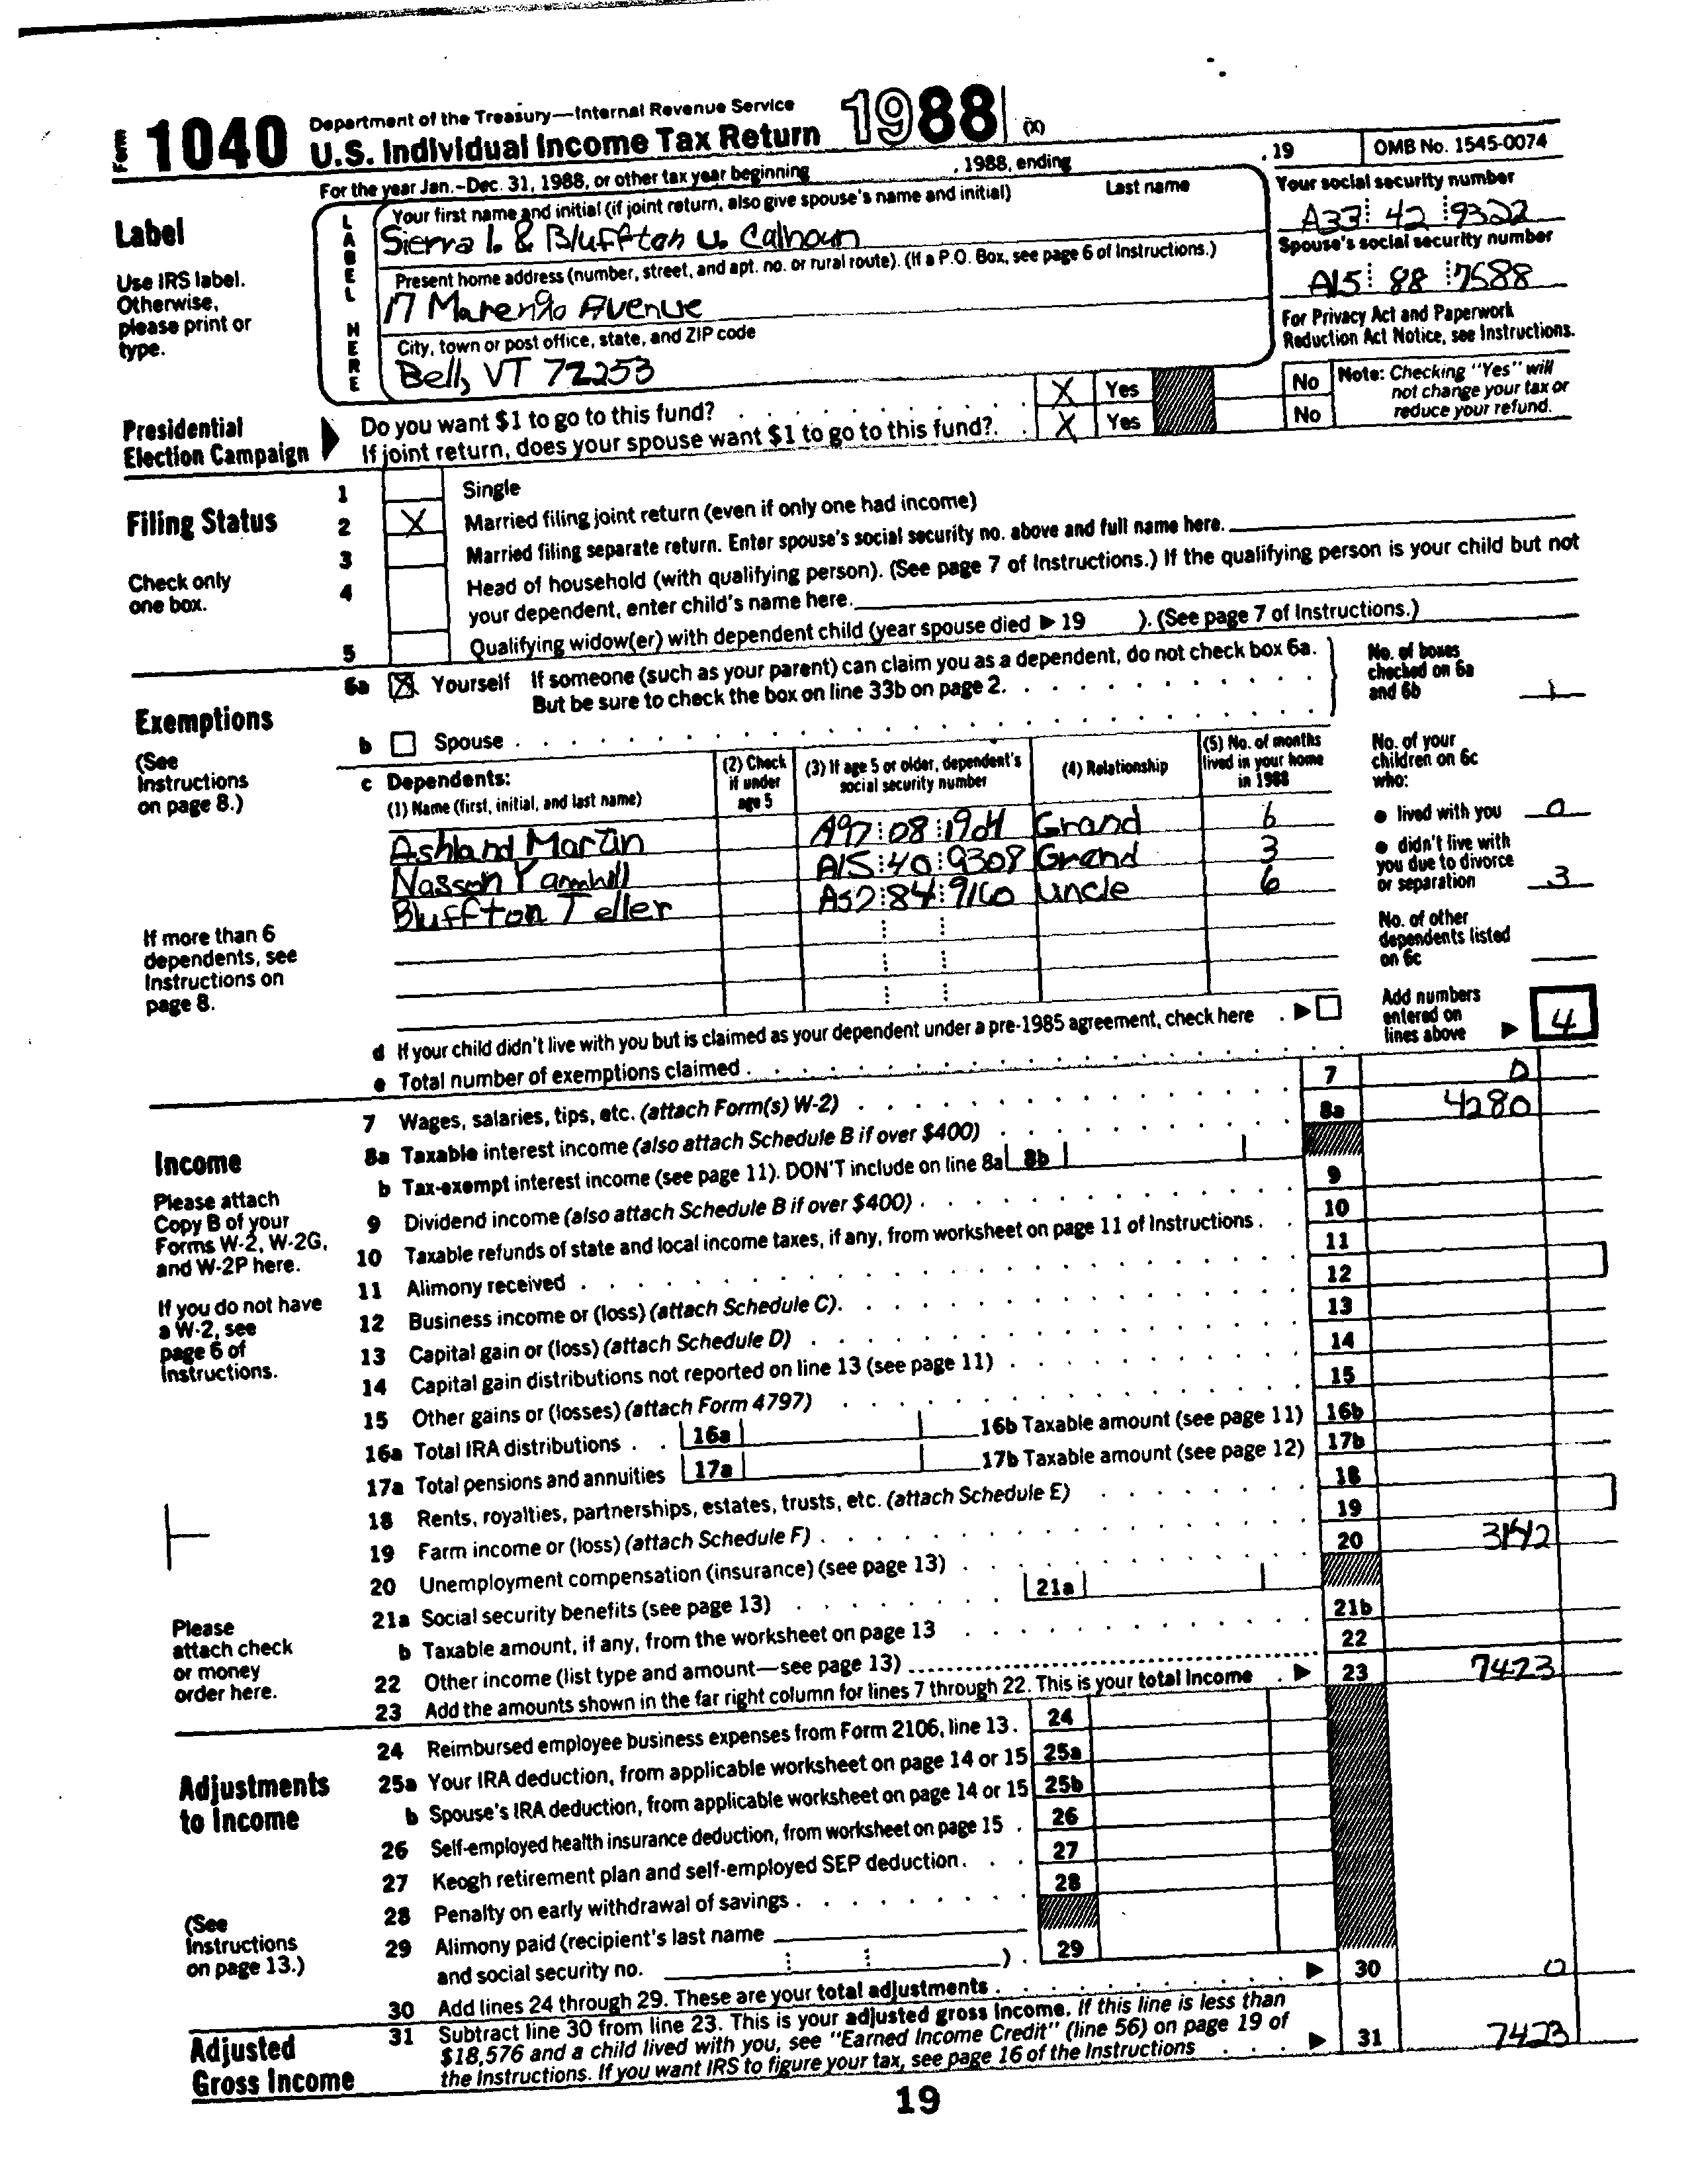 Form 1040 Department of the Treasury—Internal Revenue Service
U.S. Individual Income Tax Return 1988 (X)
For the year Jan.–Dec. 31, 1988, or other tax year beginning , 1988, ending , 19 OMB No. 1545-0074
Label
Use IRS label. Otherwise, please print or type.
LABEL HERE
Your first name and initial (if joint return, also give spouse's name and initial) Last name
Sierra I. & Bluffton U. Calhoun
Your social security number
A33 42 9322
Present home address (number, street, and apt. no. or rural route). (If a P.O. Box, see page 6 of Instructions.)
17 Marengo Avenue
Spouse's social security number
A15 88 7588
City, town or post office, state, and ZIP code
Bell, VT 72253
For Privacy Act and Paperwork Reduction Act Notice, see Instructions.
Presidential Election Campaign
Do you want $1 to go to this fund? X Yes No
If joint return, does your spouse want $1 to go to this fund? X Yes No
Note: Checking "Yes" will not change your tax or reduce your refund.
Filing Status
Check only one box.
1 Single
2 X Married filing joint return (even if only one had income)
3 Married filing separate return. Enter spouse's social security no. above and full name here.
4 Head of household (with qualifying person). (See page 7 of Instructions.) If the qualifying person is your child but not
your dependent, enter child's name here.
5 Qualifying widow(er) with dependent child (year spouse died ▶ 19 ). (See page 7 of Instructions.)
Exemptions
(See Instructions on page 8.)
6a X Yourself If someone (such as your parent) can claim you as a dependent, do not check box 6a.
But be sure to check the box on line 33b on page 2.
b Spouse
No. of boxes checked on 6a and 6b 1
c Dependents:
(1) Name (first, initial, and last name) (2) Check if under age 5 (3) If age 5 or older, dependent's social security number (4) Relationship (5) No. of months lived in your home in 1988
Ashland Martin A97 08 1904 Grand 6
Nasson Yamhill A15 40 9308 Grand 3
Bluffton Teller A52 84 9160 Uncle 6
No. of your children on 6c who:
● lived with you 0
● didn't live with you due to divorce or separation 3
No. of other dependents listed on 6c
If more than 6 dependents, see Instructions on page 8.
d If your child didn't live with you but is claimed as your dependent under a pre-1985 agreement, check here ▶
e Total number of exemptions claimed
Add numbers entered on lines above ▶ 4
Income
Please attach Copy B of your Forms W-2, W-2G, and W-2P here.
If you do not have a W-2, see page 6 of Instructions.
7 Wages, salaries, tips, etc. (attach Form(s) W-2) 7 0
8a Taxable interest income (also attach Schedule B if over $400) 8a 4280
b Tax-exempt interest income (see page 11). DON'T include on line 8a 8b
9 Dividend income (also attach Schedule B if over $400) 9
10 Taxable refunds of state and local income taxes, if any, from worksheet on page 11 of Instructions 10
11 Alimony received 11
12 Business income or (loss) (attach Schedule C) 12
13 Capital gain or (loss) (attach Schedule D) 13
14 Capital gain distributions not reported on line 13 (see page 11) 14
15 Other gains or (losses) (attach Form 4797) 15
16a Total IRA distributions 16a 16b Taxable amount (see page 11) 16b
17a Total pensions and annuities 17a 17b Taxable amount (see page 12) 17b
18 Rents, royalties, partnerships, estates, trusts, etc. (attach Schedule E) 18
19 Farm income or (loss) (attach Schedule F) 19
20 Unemployment compensation (insurance) (see page 13) 20
21a Social security benefits (see page 13) 21a
b Taxable amount, if any, from the worksheet on page 13 21b
22 Other income (list type and amount—see page 13) 22
23 Add the amounts shown in the far right column for lines 7 through 22. This is your total income ▶ 23 7423
Please attach check or money order here.
Adjustments to Income
(See Instructions on page 13.)
24 Reimbursed employee business expenses from Form 2106, line 13 24
25a Your IRA deduction, from applicable worksheet on page 14 or 15 25a
b Spouse's IRA deduction, from applicable worksheet on page 14 or 15 25b
26 Self-employed health insurance deduction, from worksheet on page 15 26
27 Keogh retirement plan and self-employed SEP deduction 27
28 Penalty on early withdrawal of savings 28
29 Alimony paid (recipient's last name
and social security no. ) 29
30 Add lines 24 through 29. These are your total adjustments ▶ 30 0
Adjusted Gross Income
31 Subtract line 30 from line 23. This is your adjusted gross income. If this line is less than
$18,576 and a child lived with you, see "Earned Income Credit" (line 56) on page 19 of
the Instructions. If you want IRS to figure your tax, see page 16 of the Instructions ▶ 31 7423
19